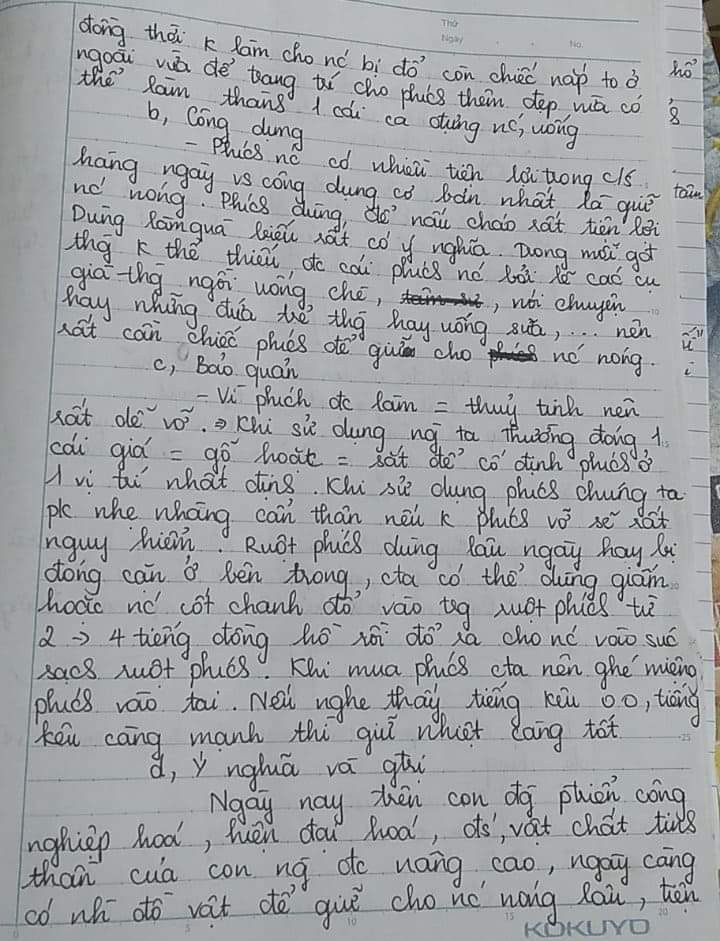 Thứ
Ngày No.
đồng thời k làm cho nć bị đổ còn chiếc nắp to ở
ngoài vừa để trang trí cho phićs thêm đẹp vừa có
thể làm thành 1 cái ca đựng nć, uống
b, Công dụng
- Phićs nć có nhiều tiện lợi trong c/s
hàng ngày vs công dụng cơ bản nhất là giữ
nć nóng. Phićs dùng để nấu cháo rất tiện lợi
Dùng làm quà biếu rất có ý nghĩa. Trong mỗi gđ
thg k thể thiếu đc cái phićs nć bởi lẽ các cụ
già thg ngồi uống chè, , nói chuyện
hay những đứa trẻ thg hay uống sữa, ... nên
rất cần chiếc phićs để giữ cho nć nóng.
c, Bảo quản
- Vì phích đc làm = thuỷ tinh nên
rất dễ vỡ. ⇒ Khi sử dụng ng ta thường đóng 1
cái giá = gỗ hoặc = sắt để cố định phićs ở
1 vị trí nhất định. Khi sử dụng phićs chúng ta
pk nhẹ nhàng cẩn thận nếu k phićs vỡ sẽ rất
nguy hiểm. Ruột phićs dùng lâu ngày hay bị
đóng cặn ở bên trong, cta có thể dùng giấm
hoặc nć cốt chanh đổ vào trg ruột phićs từ
2 → 4 tiếng đồng hồ rồi đổ ra cho nć vào súc
sạch ruột phićs. Khi mua phićs cta nên ghé miệng
phićs vào tai. Nếu nghe thấy tiếng kêu o o, tiếng
kêu càng mạnh thì giữ nhiệt càng tốt
d, Ý nghĩa và gtrị
Ngày nay trên con đg phiển công
nghiệp hoá, hiện đại hoá, đ/s, vật chất tinh
thần của con ng đc nâng cao, ngày càng
có nh̀ đồ vật để giữ cho nć nóng lâu, tiện
KOKUYO